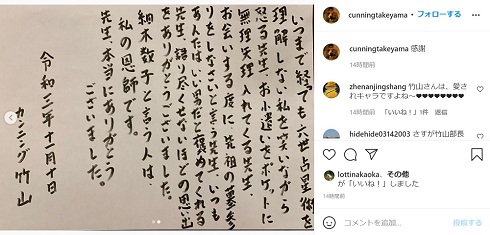 いつまで経っても六世占星術を
理解しない私を笑いながら
怒る先生、お小遣いをポケットに
無理矢理入れてくる先生、
お会いする度に、先祖の墓参
りをしなさいと言う先生、いつも
あんたはいい男だと褒めてくれる
先生、語り尽くせないほどの思い出
をありがとうございました。
細木数子と言う人は、
私の恩師です。
先生、本当にありがとう
ございました。
令和三年十一月十日
カンニング竹山
cunningtakeyama • フォローする
cunningtakeyama 感謝
14時間前
zhenanjingshang 竹山さんは、愛さ
れキャラですよね〜❤❤❤❤❤❤❤❤
14時間前 「いいね！」1件 返信
hidehide03142003 さすが竹山部長
lottinakaoka、その他
が「いいね！」しました
14時間前
コメントを追加...
投稿する